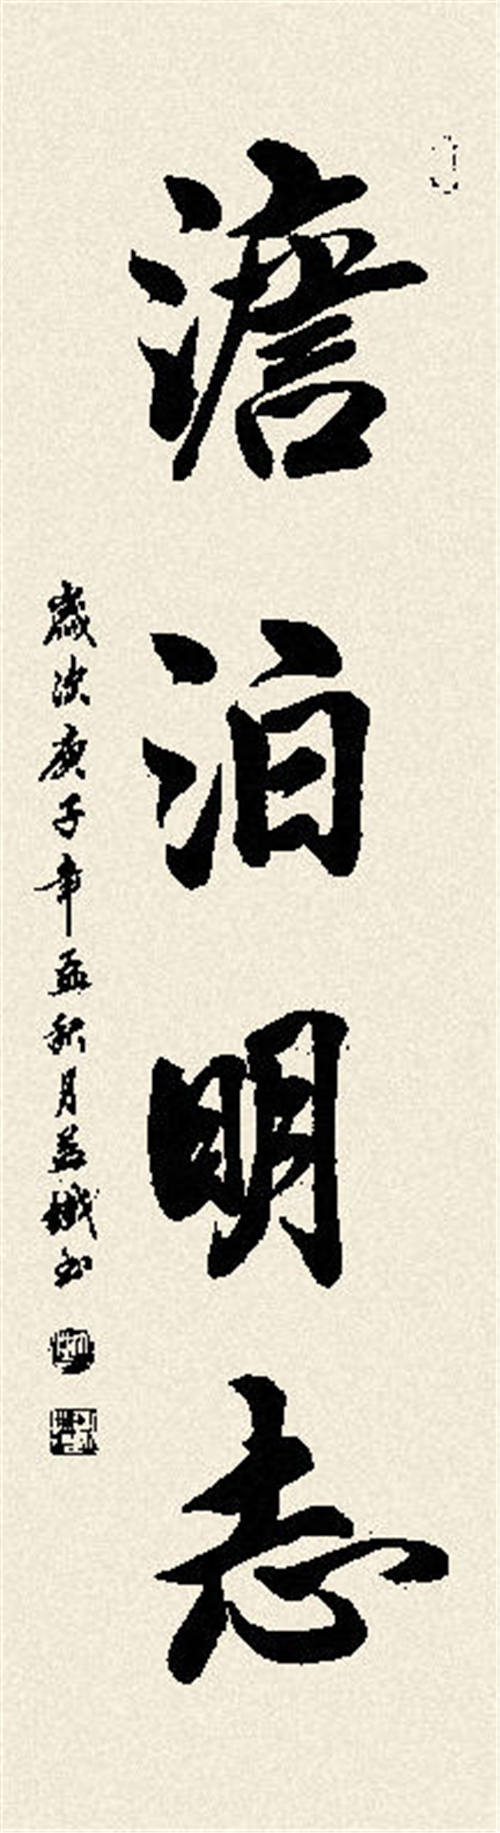 澹泊明志
歲次庚子年孟秋月益城书